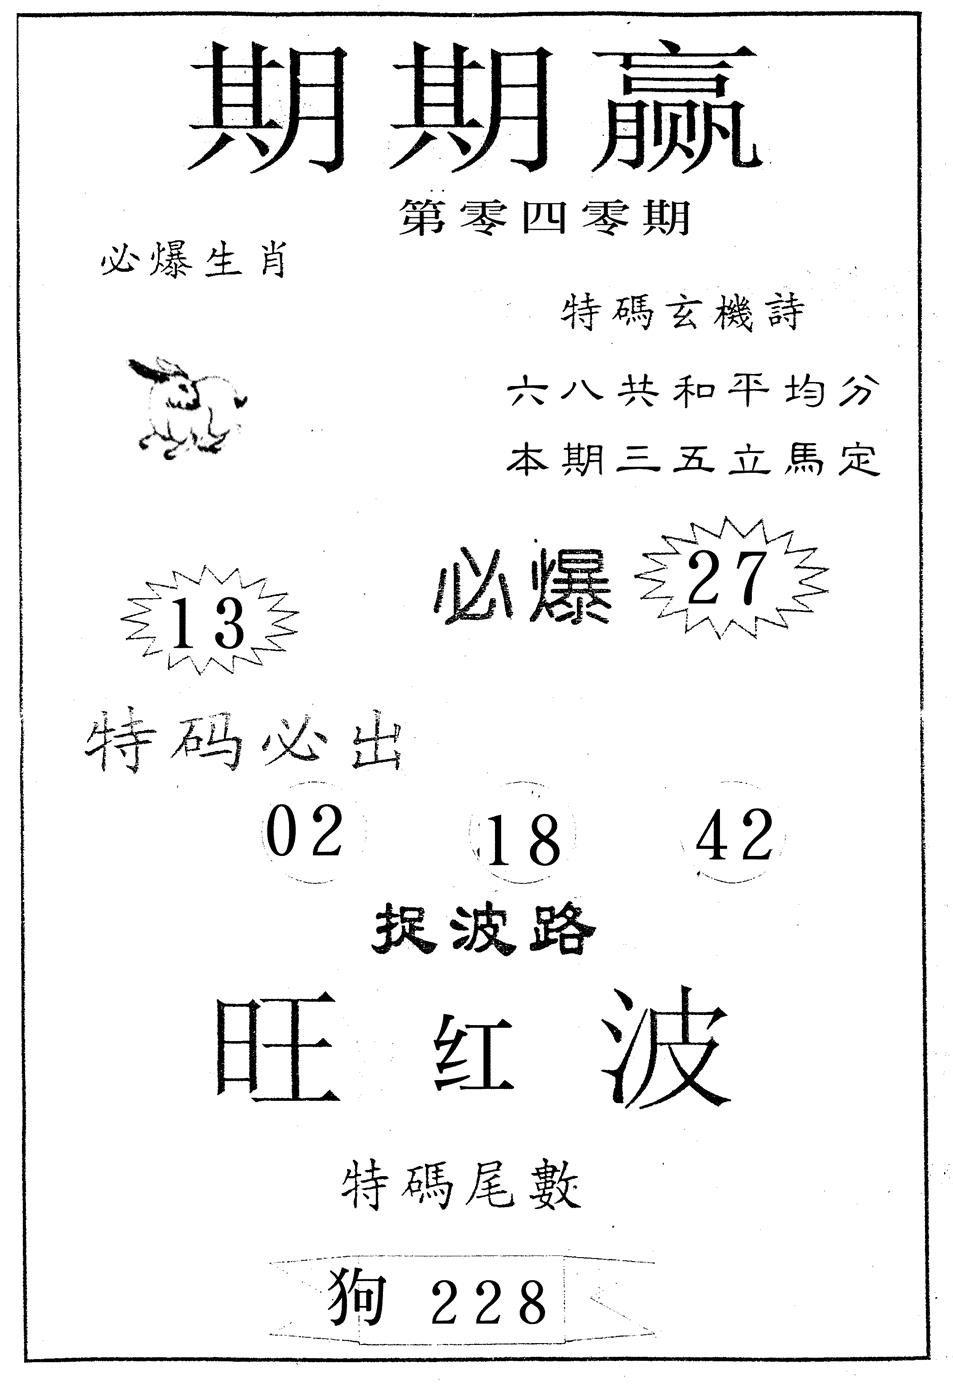 期期赢
第零四零期
必爆生肖
特碼玄機詩
六八共和平均分
本期三五立馬定
必爆 27
13
特码必出
02 18 42
捉波路
旺红波
特碼尾數
狗 228